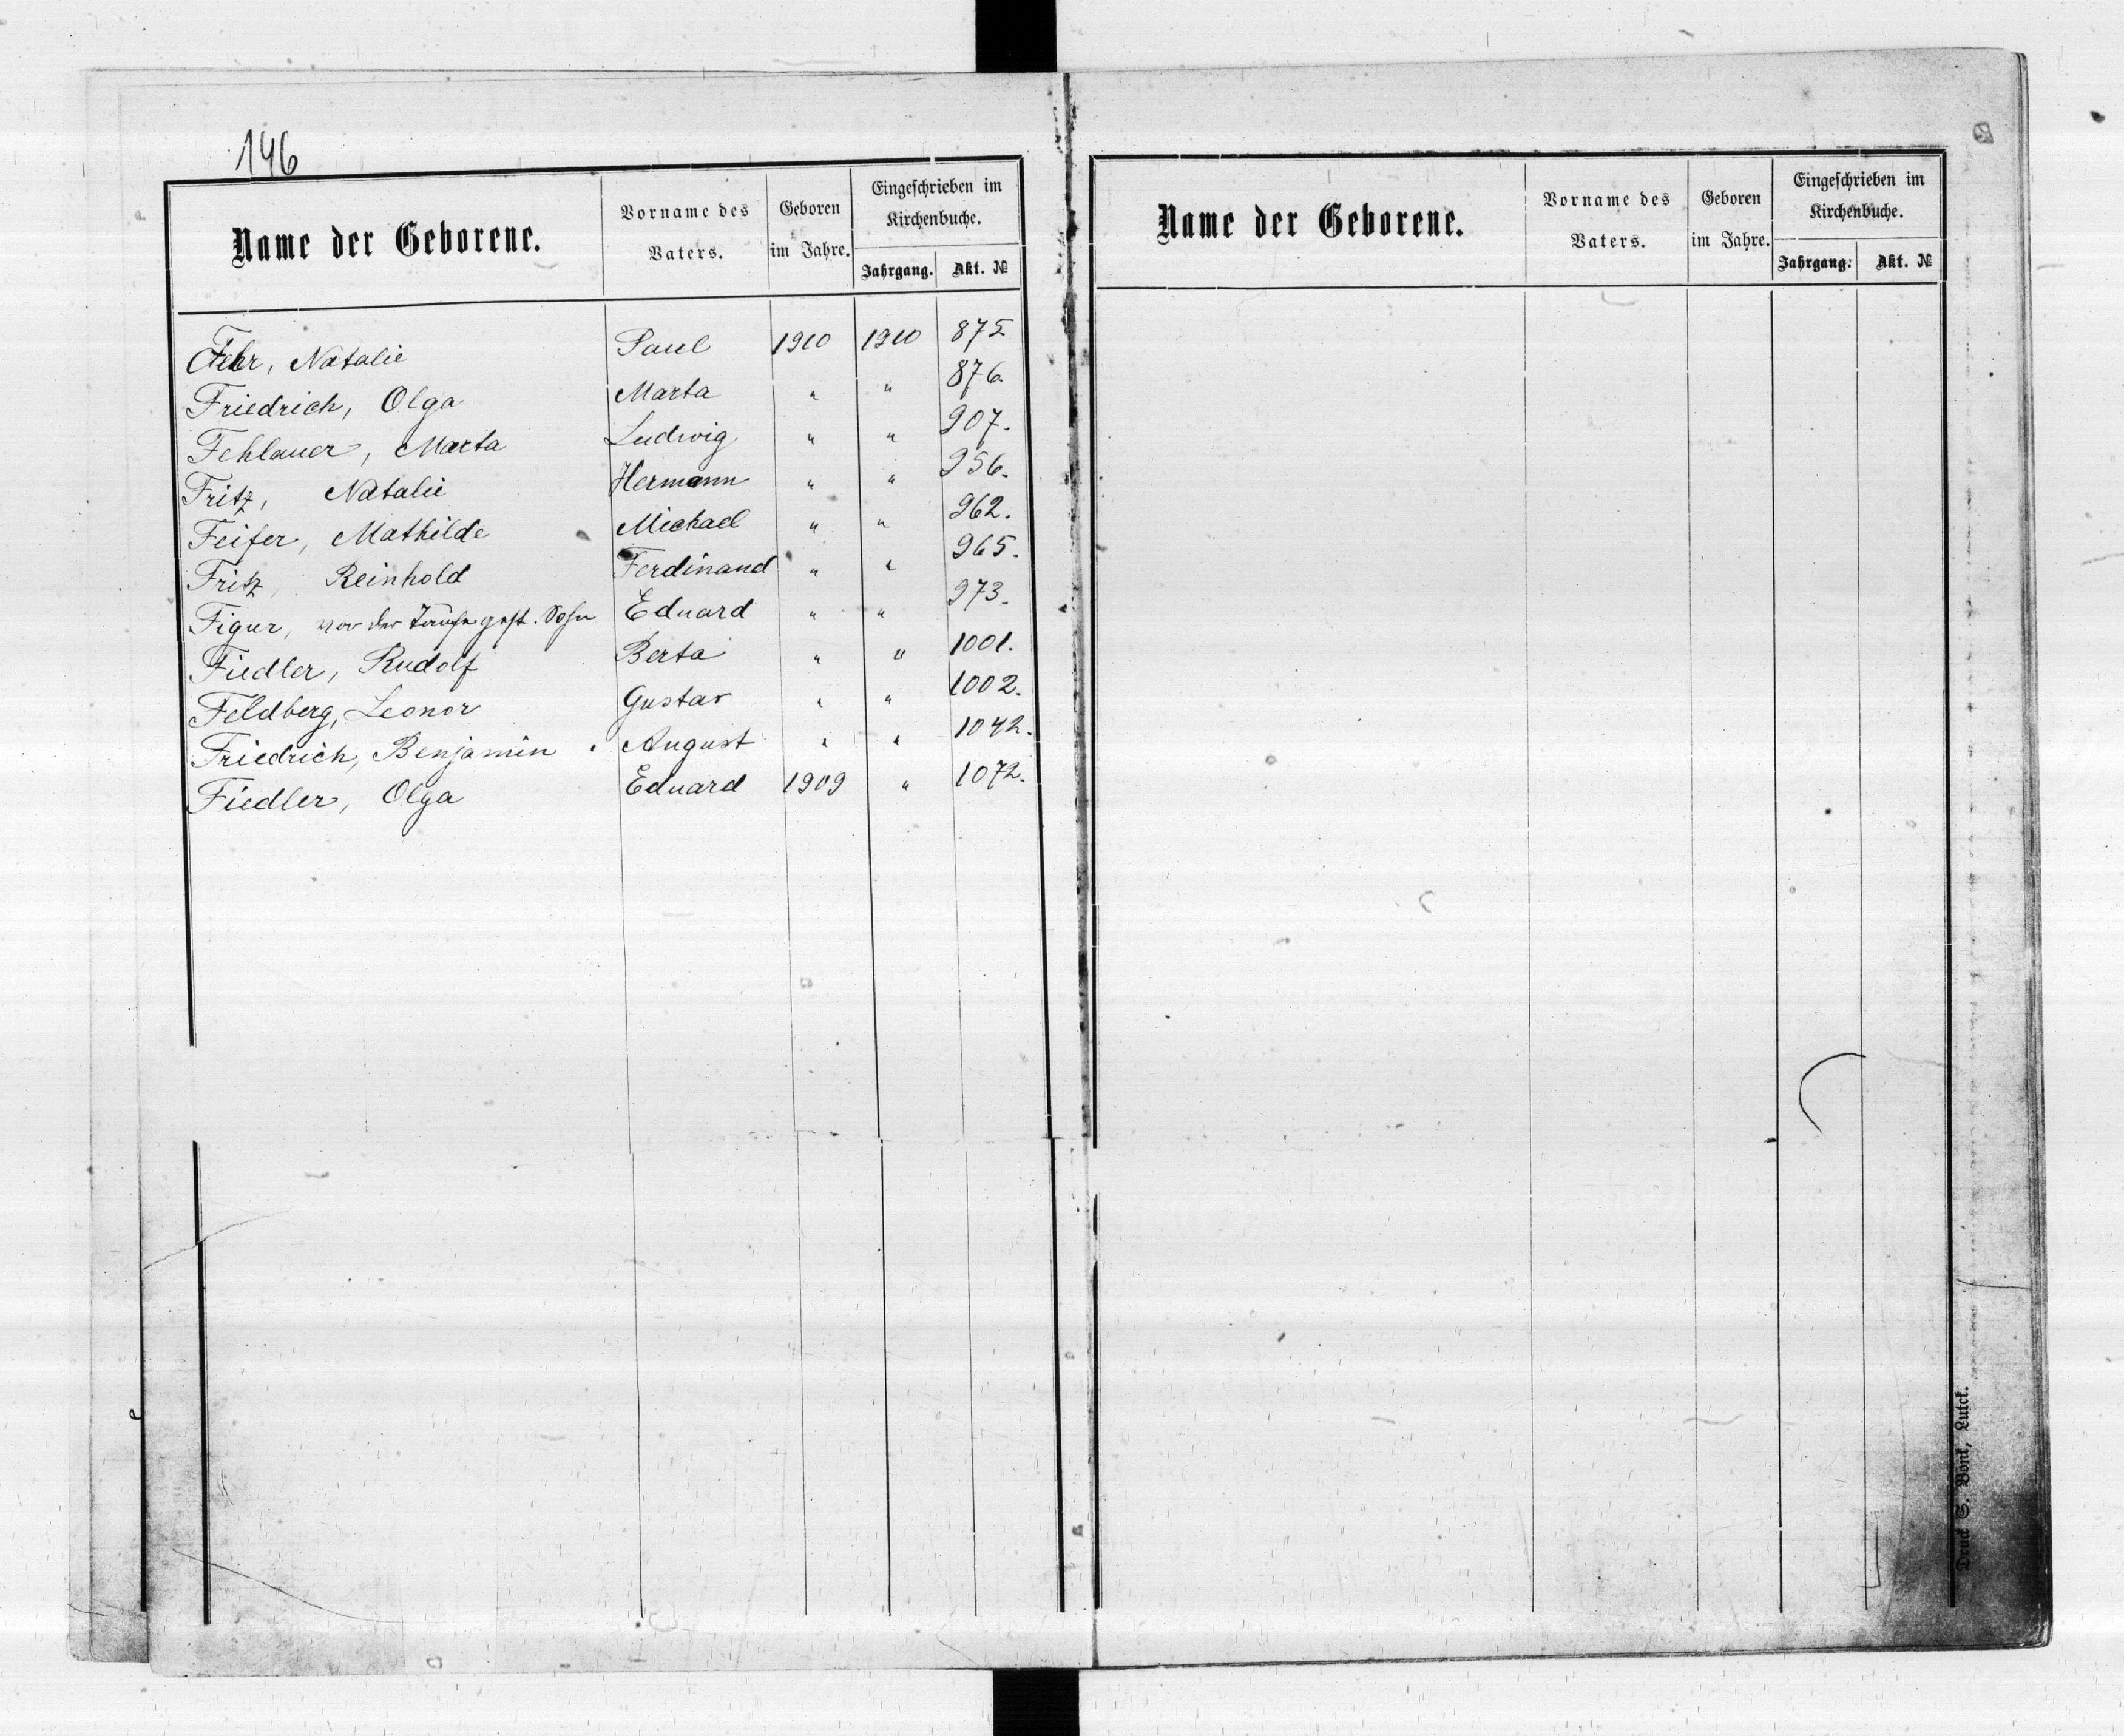 146
Name der Geborene.
Vorname des
Vaters.
Geboren
im Jahre.
Eingeschrieben im
Kirchenbuche.
Jahrgang.
Akt. №
Fehr, Natalie Paul 1910 1910 875.
Friedrich, Olga Marta " " 876
Fehlauer, Marta Ludwig " " 907.
Fritz, Natalie Hermann " " 956.
Feifer, Mathilde Michael " " 962.
Fritz, Reinhold Ferdinand " " 965.
Figur, vor der Taufe gest. Sohn Eduard " " 973.
Fiedler, Rudolf Berta " " 1001.
Feldberg, Leonor Gustav " " 1002.
Friedrich, Benjamin August " " 1042.
Fiedler, Olga Eduard 1909 " 1072.
Name der Geborene.
Vorname des
Vaters.
Geboren
im Jahre.
Eingeschrieben im
Kirchenbuche.
Jahrgang.
Akt. №
Druck S. Bonk, Lutck.